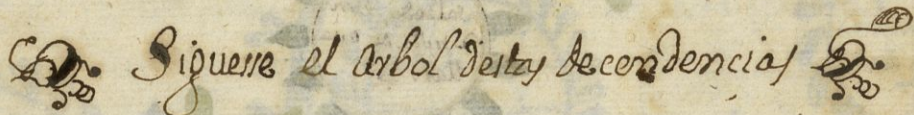 Siguesse el arbol destas decendencias